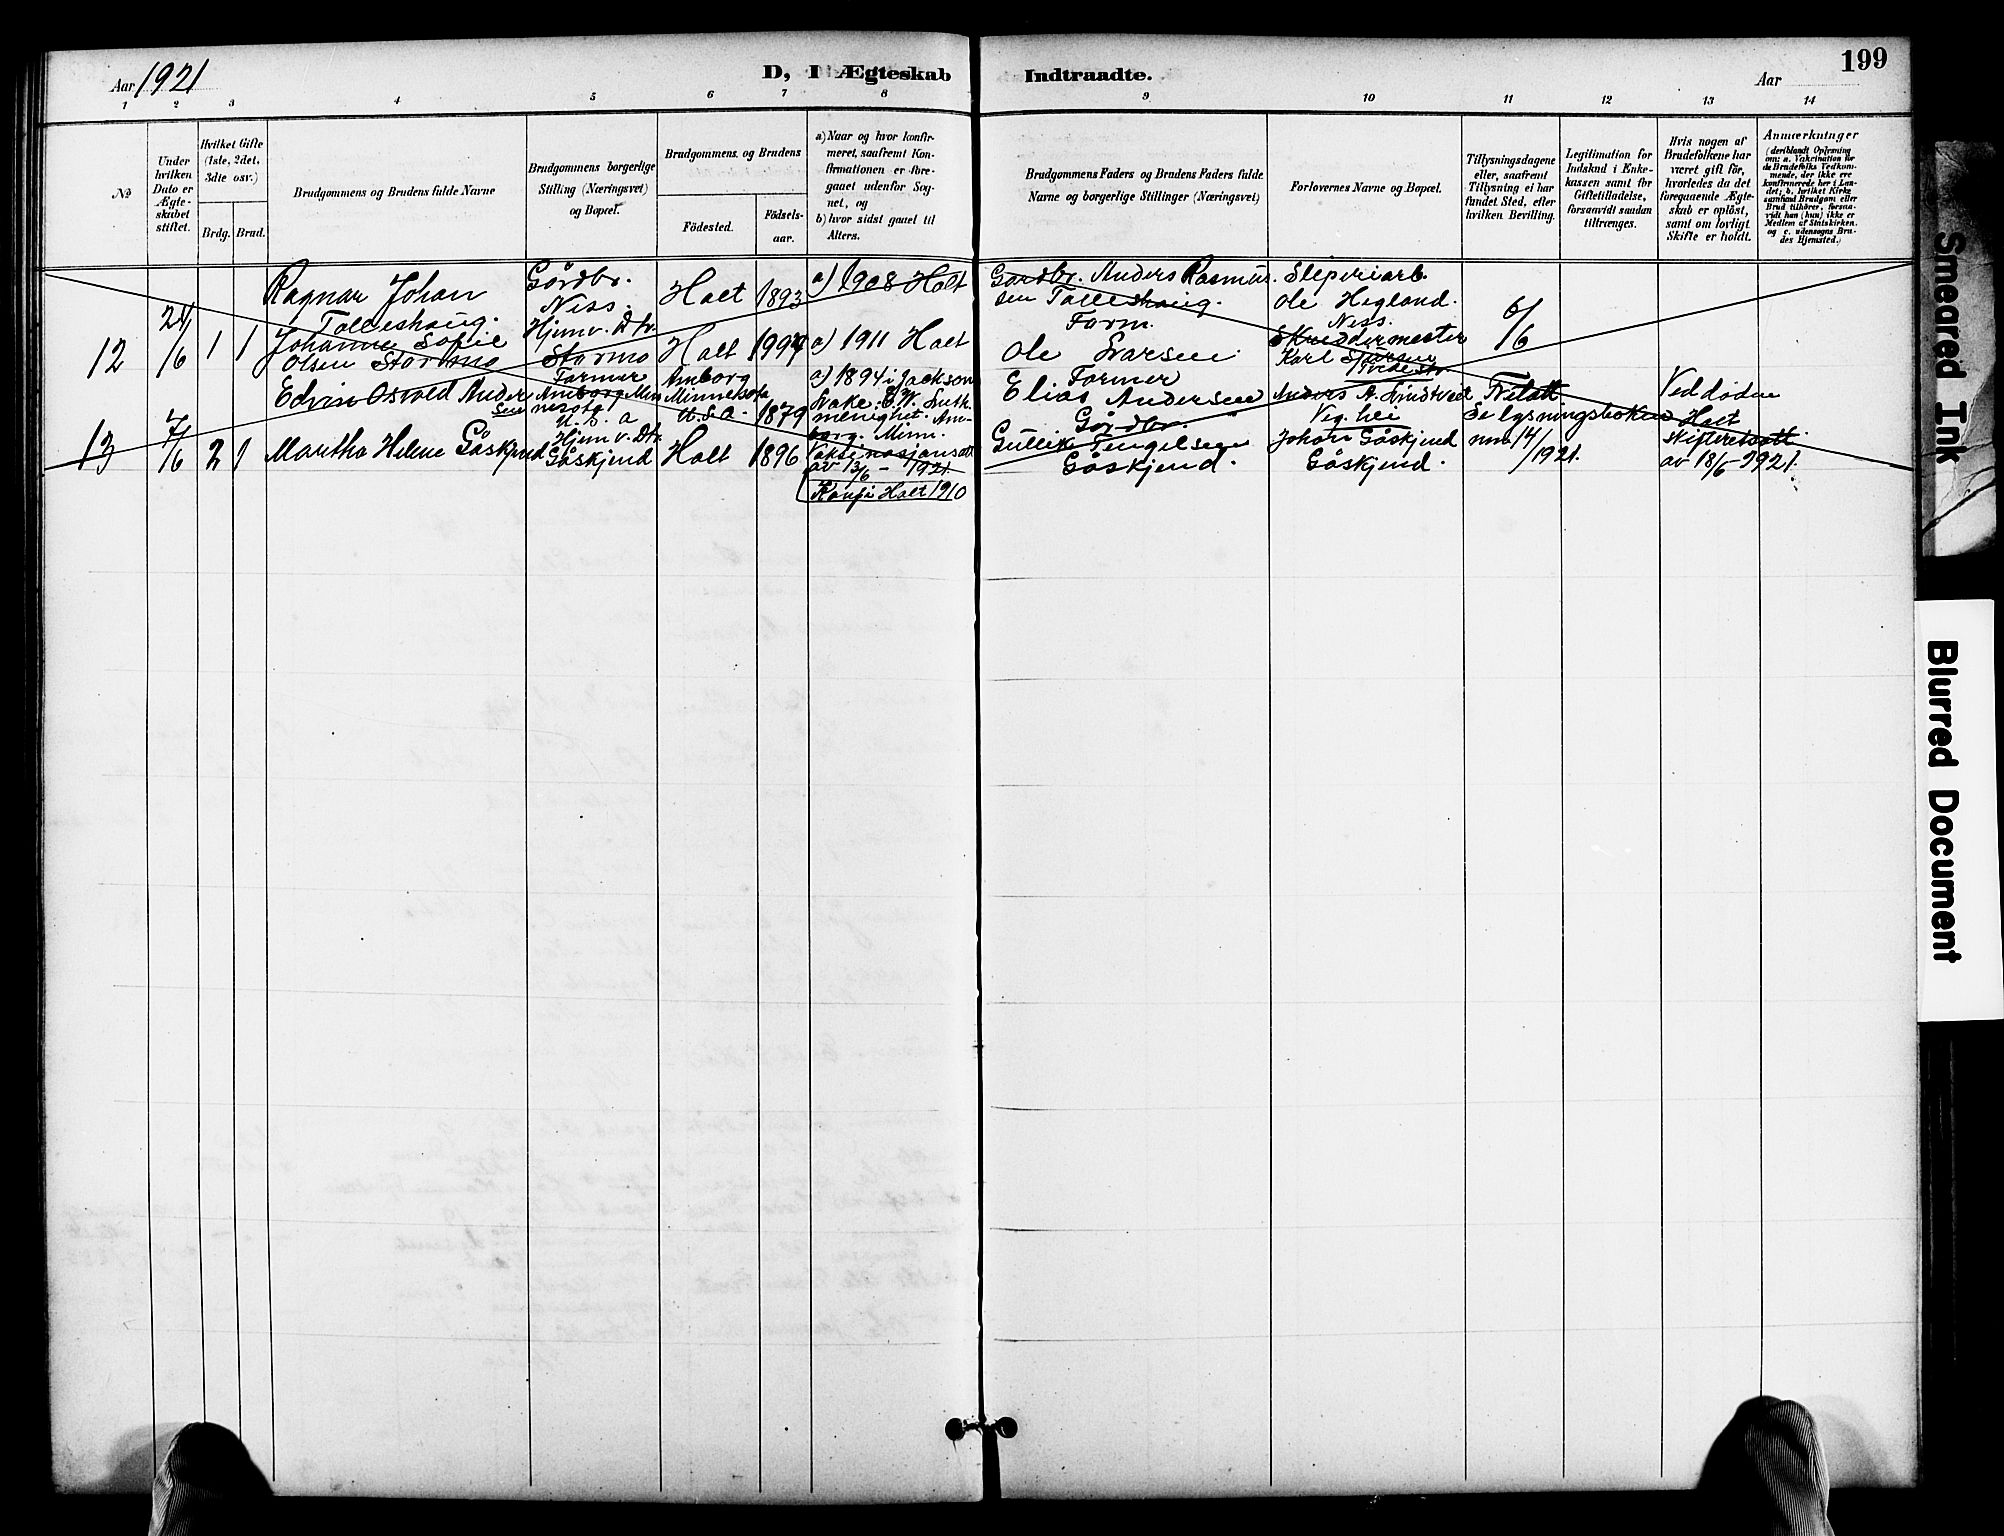 Aar 1921
D, I Ægteskab Indtraadte.
Aar
199
1 2 3 4 5 6 7 8 9 10 11 12 13 14
№
Under
hvilken
Dato er
Ægte-
skabet
stiftet.
Hvilket Gifte
(1ste, 2det,
3die osv.)
Brdg. Brud.
Brudgommens og Brudens fulde Navne
Brudgommens borgerlige
Stilling (Næringsvei)
og Bopæl.
Brudgommens og Brudens
Födested.
Födsels-
aar.
a) Naar og hvor konfir-
meret, saafremt Kon-
firmationen er fore-
gaaet udenfor Sog-
net, og
b) hvor sidst gaaet til
Alters.
Brudgommens Faders og Brudens Faders fulde
Navne og borgerlige Stillinger (Næringsvei)
Forlovernes Navne og Bopæl.
Tillysningsdagene
eller, saafremt
Tillysning ei har
fundet Sted, efter
hvilken Bevilling.
Legitimation for
Indskud i Enke-
kassen samt for
Giftetilladelse,
forsaavidt saadan
tiltrænges.
Hvis nogen af
Brudefolkene har
været gift för,
hvorledes da det
foregaaende Ægte-
skab er oplöst,
samt om lovligt
Skifte er holdt.
Anmærkninger
(deriblandt Oplysning
om: a. Vakcination for
de Brudefolks Vedkom-
mende, der ikke ere
konfirmerede her i Lan-
det; b. hvilket Kirke
samfund Brudgom eller
Brud tilhörer, forsaa-
vidt han (hun) ikke er
Medlem af Statskirken,
og c. udensogns Bru-
des Hjemsted.)
12
24/6
1 1
Ragnar Johan
Tolleshaug.
Johanne Sofie
Olsen Stormo
Gårdbr.
Ness.
Hjemv. Dtr.
Stormo
Holt 1893
Holt 1994
a) 1908 Holt
a) 1911 Holt
Gardbr. Anders Rasmus-
sen Tolleshaug.
Farm.
Ole Larsen
Sliperiarb.
Ole Hegland.
Ness.
Skreddermester
Karl
6/6
13
7/6
2 1
Edvin Osvald Ander
sen
Martha Helene Gåskjend
Farmer
Amborg Min
nesota
U. S. a
Hjemv. Dtr.
Gåskjend
Amborg
Minnesota
U.S.A. 1879
Holt 1896
a) 1894 i Jackson
Lake. E.W. Luth.
menighet. Am-
borg. Minn.
Vaksinasjonsatt
av 13/6 - 1921.
Konf. i Holt 1910
Farmer
Elias Andersen
Gårdbr.
Gullik Tengelsen
Gåskjend.
Anders A. Lindtveit
Veg. hei
Johan Gåskjend
Gåskjend.
Tillatt
Se lysningsboken
nm 14/1921.
Ved döden
Holt
skifteretsatt
av 18/6-1921.
Smeared Ink
Blurred Document